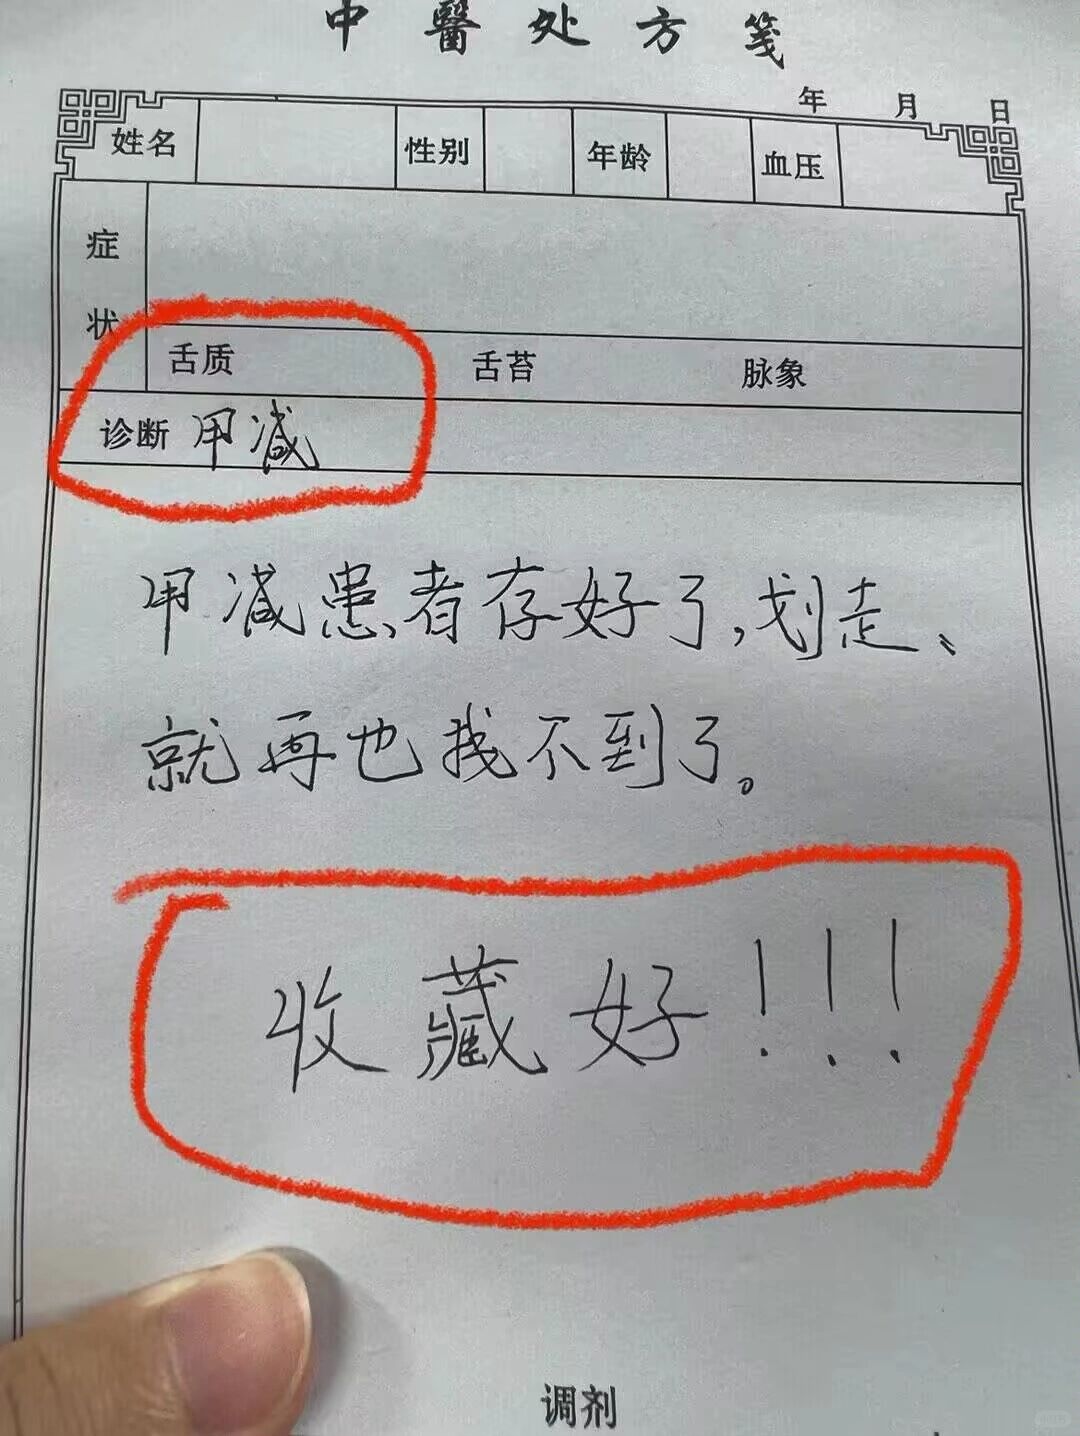 中醫处方笺
年 月 日
姓名 性别 年龄 血压
症状
舌质 舌苔 脉象
诊断 甲减
甲减患者存好了,划走、
就再也找不到了。
收藏好!!!
调剂